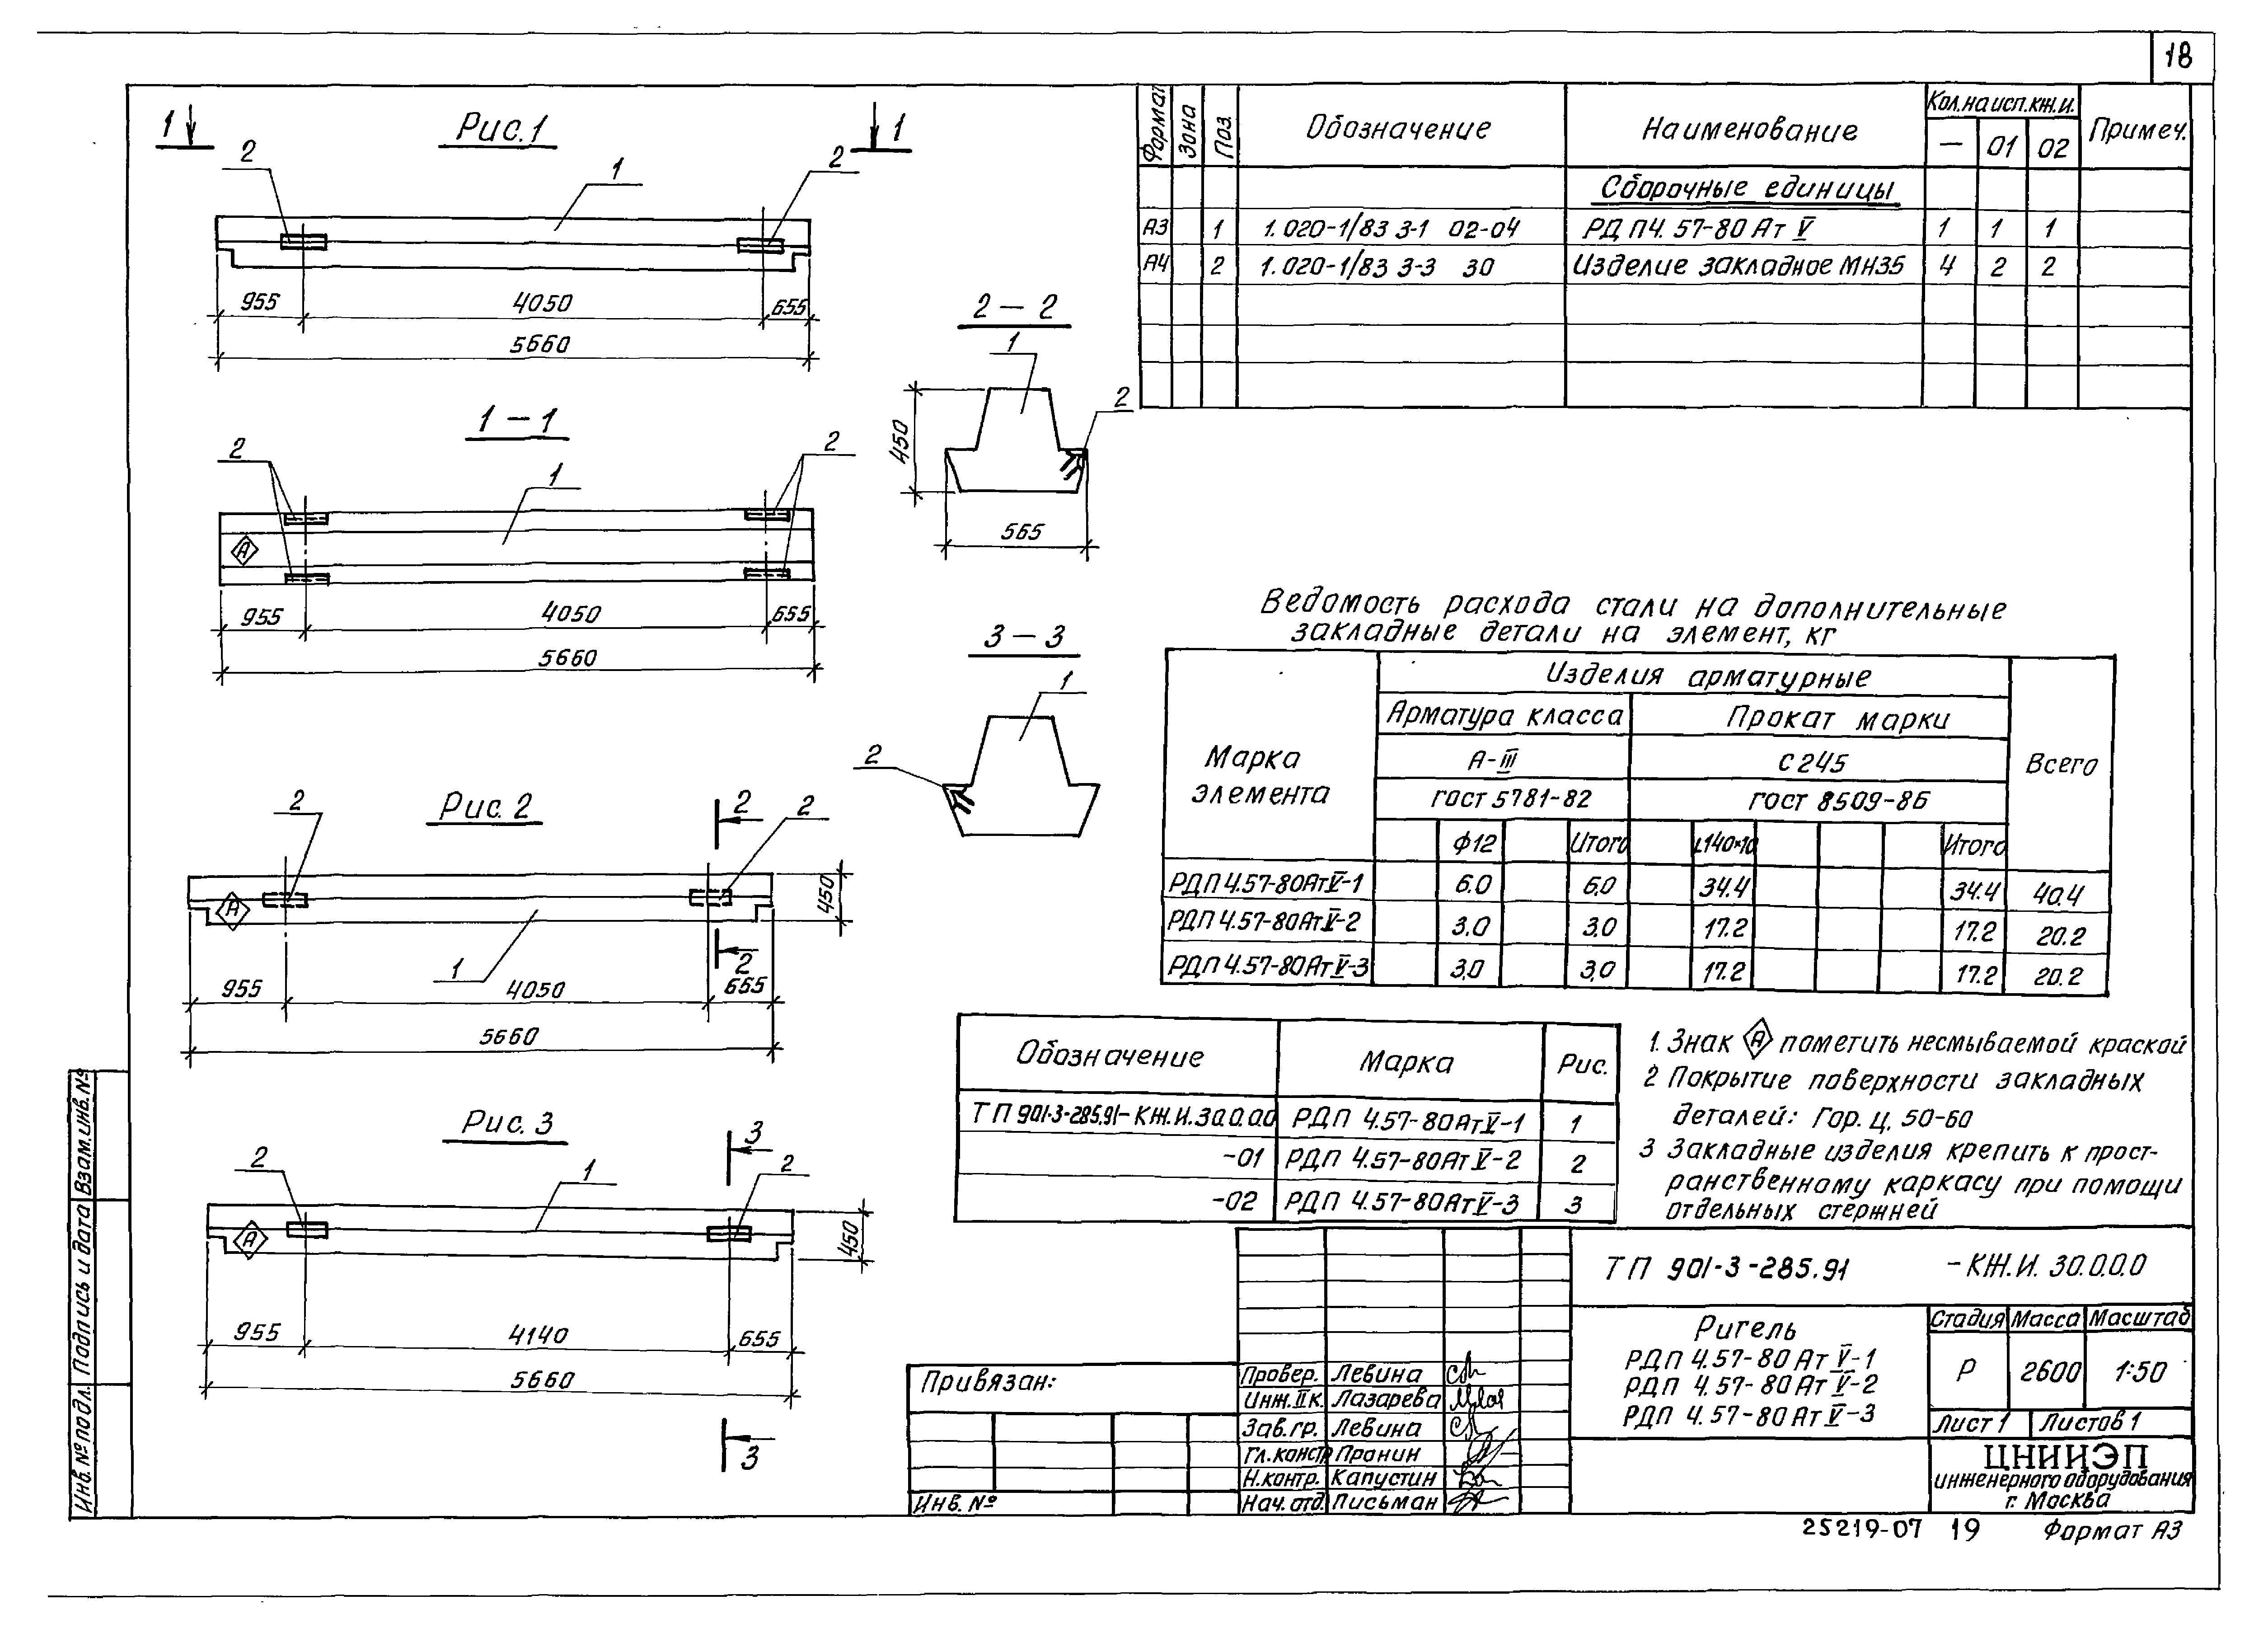 18
Рис.1
1 1
2 1 2
955 4050 655
5660
1-1
2 1 2
А
955 4050 655
5660
Рис. 2
2 2 2
А
1 2
450
955 4050 655
5660
Рис. 3
3
2 1 2
А
450
955 4140 655
5660
3
2-2
1
2
450
565
3-3
1
2
Формат Зона Поз. Обозначение Наименование Кол.на исп.КЖ.И. Примеч.
— 01 02
Сборочные единицы
А3 1 1.020-1/83 3-1 02-04 РДП4.57-80 Ат V 1 1 1
А4 2 1.020-1/83 3-3 30 Изделие закладное МН35 4 2 2
Ведомость расхода стали на дополнительные
закладные детали на элемент, кг
Марка элемента
Изделия арматурные
Всего
Арматура класса Прокат марки
А-III С245
ГОСТ 5781-82 ГОСТ 8509-86
ф12 Итого L140×10 Итого
РДП 4.57-80АтV-1 6.0 6.0 34.4 34.4 40.4
РДП 4.57-80АтV-2 3.0 3.0 17.2 17.2 20.2
РДП 4.57-80АтV-3 3.0 3.0 17.2 17.2 20.2
Обозначение Марка Рис.
ТП 901-3-285.91-КЖ.И.30.0.0.0 РДП 4.57-80АтV-1 1
-01 РДП 4.57-80АтV-2 2
-02 РДП 4.57-80АтV-3 3
1. Знак А пометить несмываемой краской
2 Покрытие поверхности закладных
деталей: Гор. Ц. 50-60
3 Закладные изделия крепить к прост-
ранственному каркасу при помощи
отдельных стержней
ТП 901-3-285.91 -КЖ.И. 30.0.0.0
Ригель
РДП 4.57-80 Ат V-1
РДП 4.57-80 Ат V-2
РДП 4.57-80 Ат V-3
Стадия Масса Масштаб
Р 2600 1:50
Лист 1 Листов 1
ЦНИИЭП
инженерного оборудования
г. Москва
Провер. Левина
Инж.IIк. Лазарева
Зав.гр. Левина
Гл.констр Пронин
Н.контр. Капустин
Нач.отд. Письман
Привязан:
Инв. №
Инв. № подл. Подпись и дата Взам.инв. №
25219-07 19 Формат А3